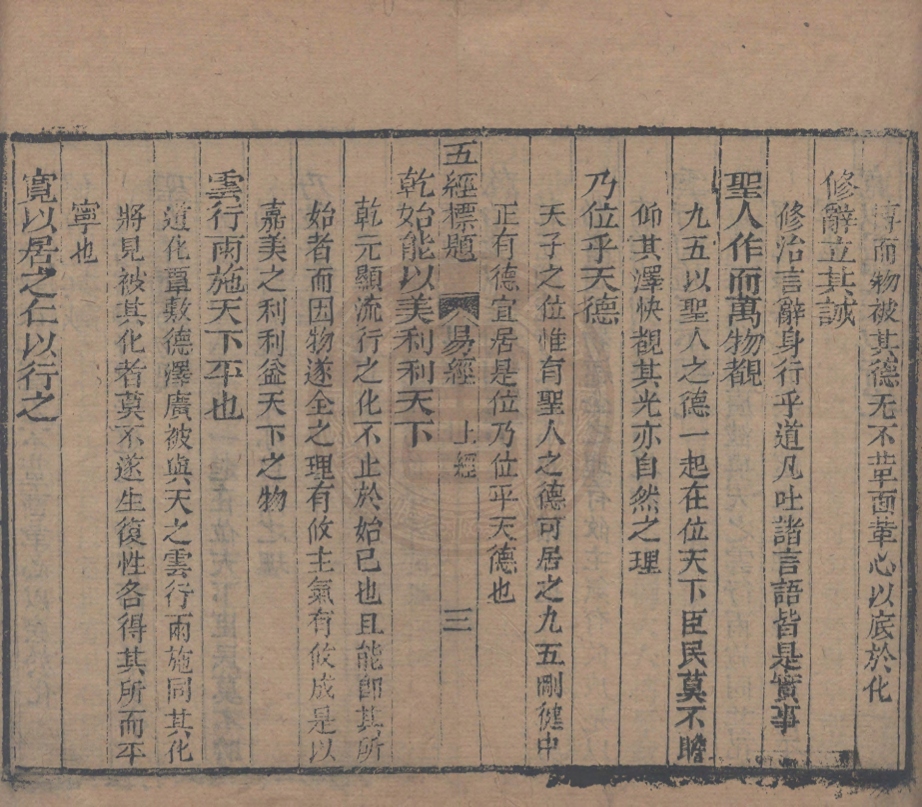 孚而物被其德无不革面革心以底於化
修辭立其誠
修治言辭身行乎道凡吐諸言語皆是實事
聖人作而萬物覩
九五以聖人之德一起在位天下臣民莫不瞻
仰其澤快覩其光亦自然之理
乃位乎天德
天子之位惟有聖人之德可居之九五剛健中
正有德宜居是位乃位乎天德也
五經標題 易經 上經 三
乾始能以美利利天下
乾元顯流行之化不止於始已也且能即其所
始者而因物遂全之理有攸主氣有攸成是以
嘉美之利利益天下之物
雲行雨施天下平也
道化覃敷德澤廣被與天之雲行雨施同其化
將見被其化者莫不遂生復性各得其所而平
寧也
寬以居之仁以行之